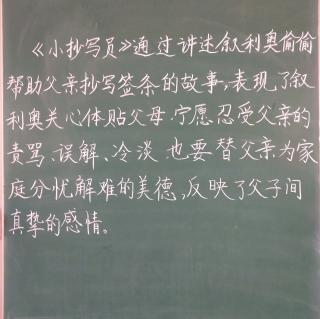 《小抄写员》通过讲述叙利奥偷偷
帮助父亲抄写签条的故事,表现了叙
利奥关心体贴父母.宁愿忍受父亲的
责骂、误解、冷淡 也要替父亲为家
庭分忧解难的美德,反映了父子间
真挚的感情。